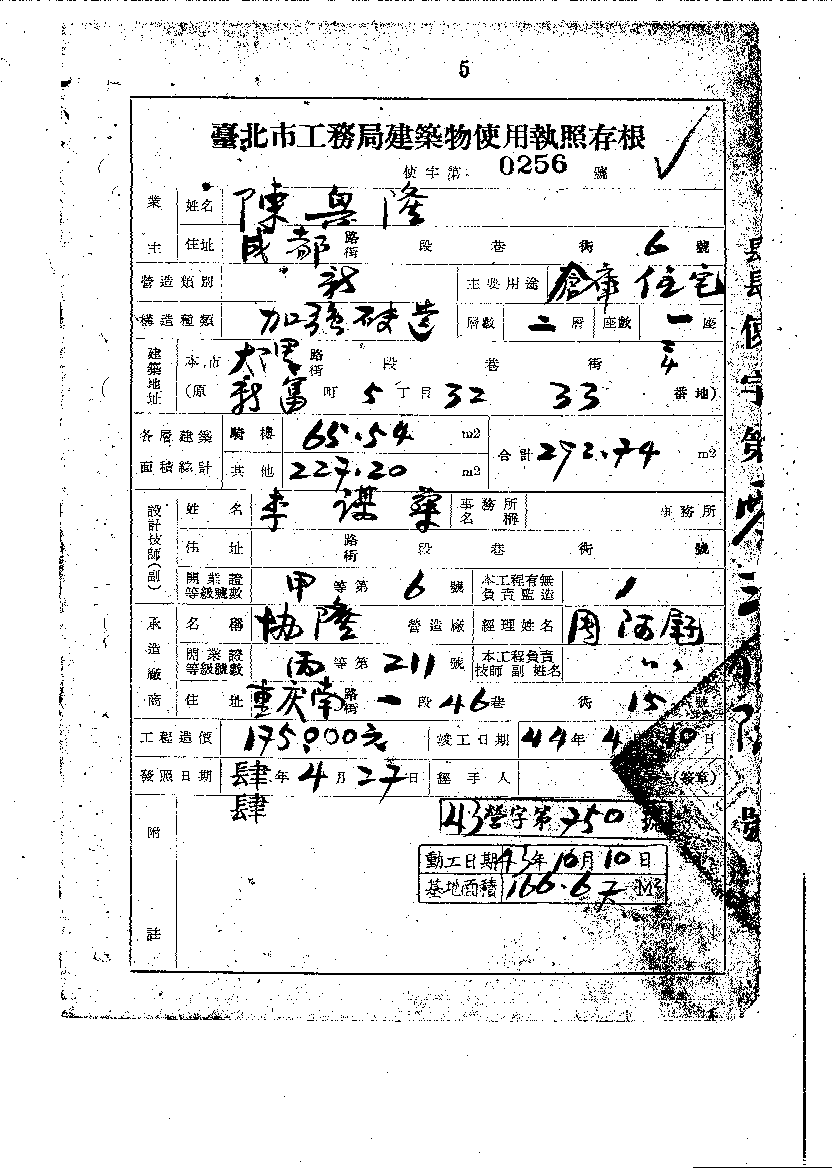 5
臺北市工務局建築物使用執照存根
使字第 0256 號
業主 姓名 陳興隆
住址 成都 路街 段 巷 街 6 號
營造類別 新 主要用途 倉庫 住宅
構造種類 加強磚造 層數 二 層 座數 一 座
建築地址 本市 路街 段 巷 街
(原 新富 町 5 丁目 32 33 番地)
各層建築面積總計 騎樓 65.54 m2 合計 292.74 m2
其他 227.20 m2
設計技師(副) 姓名 李 謀 事務所名稱 事務所
住址 路街 段 巷 街 號
開業證等級號數 甲 等第 6 號 本工程有無負責監造
承造廠商 名稱 協隆 營造廠 經理姓名 周阿
開業證等級號數 丙 等第 211 號 本工程負責技師 副 姓名
住址 重庆南 路街 一 段 46 巷 街 15 號
工程造價 175,000元 竣工日期 44 年 4 10 日
發照日期 肆肆 年 4 月 27 日 經手人 (簽章)
附註
43營字第750號
動工日期 43年10月10日
基地面積 166.67 M2